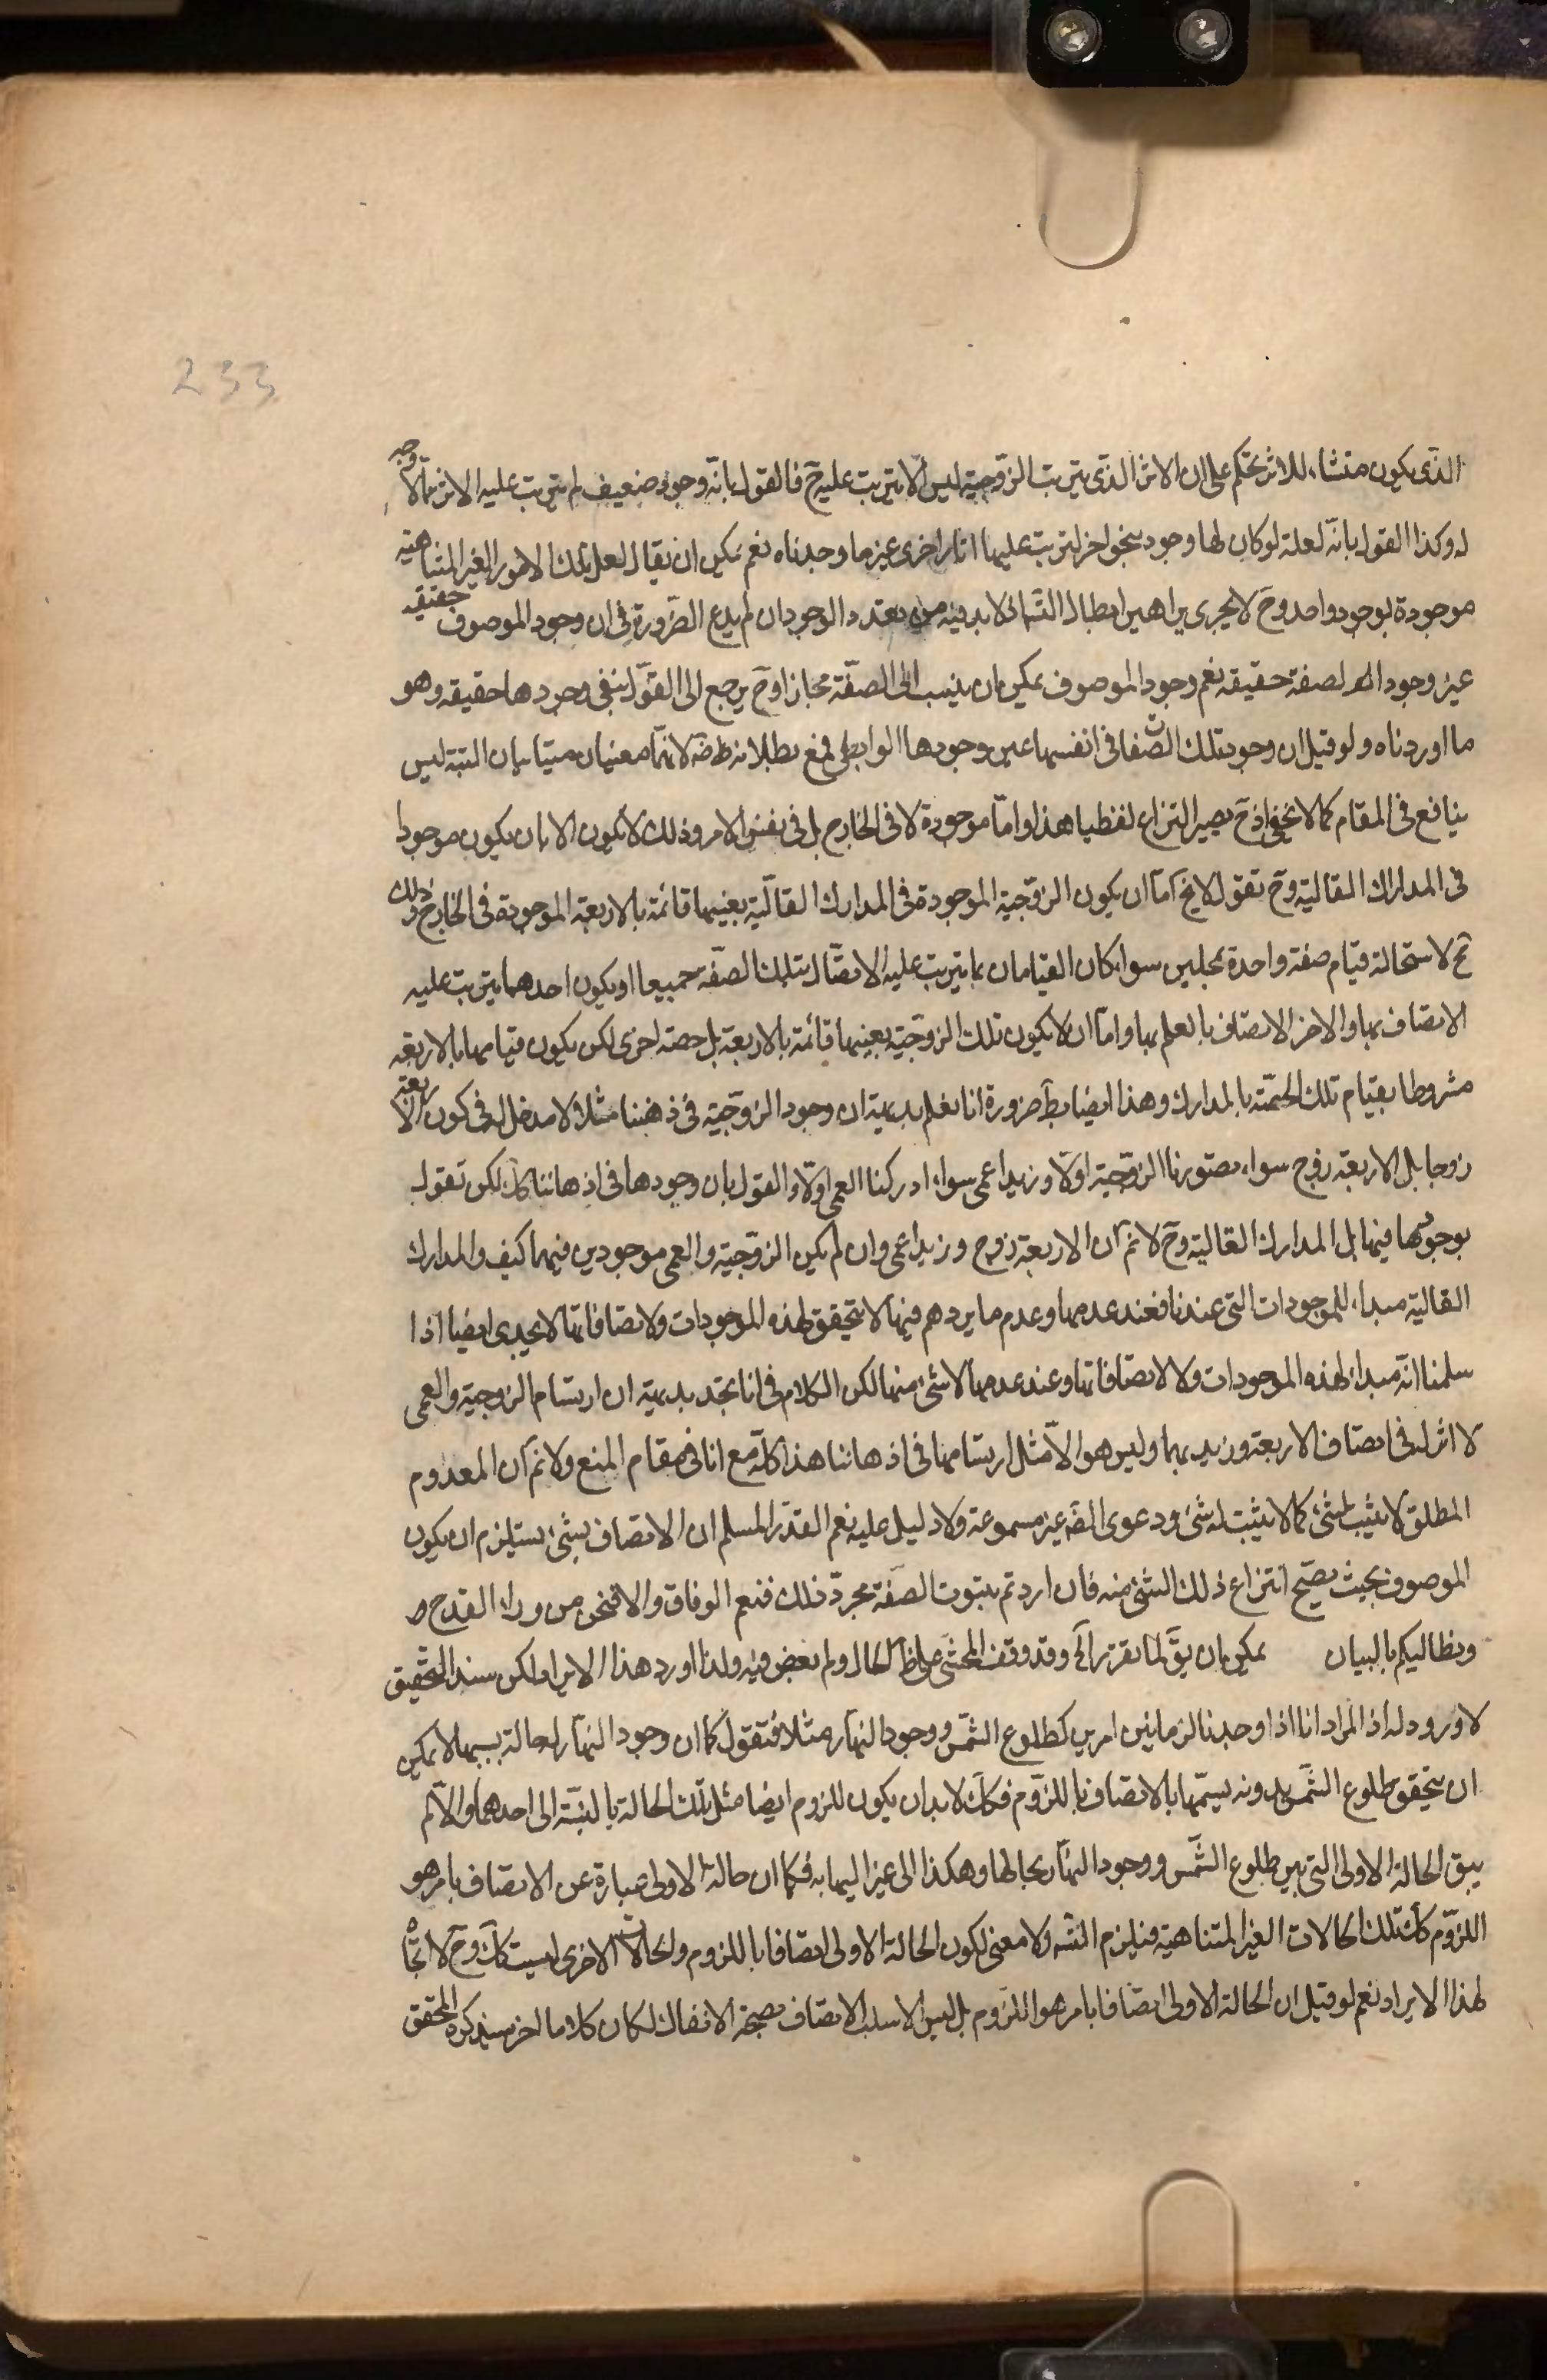 233
الذى يكون منشاء للاثر يحكم على ان الاثر الذى يترتب الزوجية ليس الا يترتب عليه ح فالقول بانه وجود ضعيف لم يترتب عليه الاثر مما لا وجه
له وكذا القول بانه لعله لو كان لها وجود بنحو اخر لترتب عليها اثار اخرى غير ما وجدناه نعم يمكن ان يقال لعل تلك الامور الغير المتناهية
موجودة بوجود واحد وح لا يجرى براهين ابطال التسا اذ لا بد فيه من تعدد الوجود ان لم يدع الضرورة فى ان وجود الموصوف حقيقه
غير وجود الصفة حقيقه نعم وجود الموصوف يمكن ان ينسب الى الصفة مجازا وح يرجع الى القول بنفى وجودها حقيقه وهو
ما اوردناه ولو قيل ان وجود تلك الصفات فى انفسها عين وجودها الرابطى فمع بطلانه ظ ضه لانهما معنيان متباينان البتة ليس
ينافع فى المقام كما لا يخفى اذ ح يصير النزاع لفظيا هذا واما موجودة لا فى الخارج بل فى نفس الامر وذلك لا يكون الا بان يكون موجودا
فى المدارك العالية وح نقول لا يخ اما ان يكون الزوجية الموجودة فى المدارك العالية بعينها قائمة بالاربعة الموجودة فى الخارج وذلك
مح لاستحالة قيام صفة واحدة بمحلين سواء كان القيامان بما يترتب عليه الاتصاف بتلك الصفة جميعا او يكون احدهما يترتب عليه
الاتصاف بها والاخر الاتصاف بالعلم بها واما ان لا يكون تلك الزوجية بعينها قائمة بالاربعة بل حصة اخرى لكن يكون قيامها بالاربعة
مشروطا بقيام تلك الحصة بالمدارك وهذا ايضا بط ضرورة انا نعلم بديهة ان وجود الزوجية فى ذهننا مثلا لا مدخل له فى كون الاربعة
زوجا بل الاربعة زوج سواء تصورنا الزوجية اولا وزيد اعمى سواء ادركنا العمى اولا والقول بان وجودها فى اذهاننا كك لكن نقول
بوجودها فيها بل المدارك العالية وح لا نم ان الاربعة زوج وزيد اعمى وان لم يكن الزوجية والعمى موجودين فيها كيف والمدارك
العالية مبداء للموجودات التى عندنا فعند عدمها وعدم ما يردهم فيها لا تحقق لهذه الموجودات ولا تصافاتها لا يجدى ايضا اذا
سلمنا انه مبداء لهذه الموجودات ولا لاتصافاتها وعند عدمها لا شئ منها لكن الكلام فى انا نجد بديهة ان ارتسام الزوجية والعمى
لا اثر له فى اتصاف الاربعة وزيد بهما وليس هو الا مثل ارتسامها فى اذهاننا هذا كله مع انا فى مقام المنع ولا نم ان المعدوم
المطلق لا يثبت لشئ كما لا يثبت له شئ ودعوى الضه غير مسموعة ولا دليل عليه نعم القدر المسلم ان الاتصاف بشئ يستلزم ان يكون
الموصوف بحيث يصح انتزاع ذلك الشئ منه فان اردتم بثبوت الصفة مجرد ذلك فنعم الوفاق والا فنحن من وراء القدح
ونطاليكم بالبيان يمكن ان يق لما تقرر وقد وقف المحشى ظ الحال ولم بعض فيه ولذا اورد هذا الايراد لكن سند التحقيق
لا ورود له اذ المراد انا اذا وجدنا لزما بين امرين كطلوع الشمس ووجود النهار مثلا فنقول كما ان وجود النهار له حالة بسببها لا يمكن
ان يتحقق طلوع الشمس بدونه نسميها بالاتصاف باللزوم فكك لا بد ان يكون للزوم ايضا مثل تلك الحالة بالنسبة الى احدهما والا لم
يبق الحالة الاولى التى بين طلوع الشمس ووجود النهار بحالها وهكذا الى غير النهاية فكما ان حالة الاولى عبارة عن الاتصاف بامر هو
اللزوم كك تلك الحالات الغير المتناهية فيلزم التسه ولا معنى لكون الحالة الاولى اتصافا باللزوم والحالات الاخرى ليست كك وح لا اتجاه
لهذا الايراد نعم لو قيل ان الحالة الاولى اتصافا بامر هو اللزوم بل ليس الا سلب الاتصاف بصحة الانفكاك لكان كلاما اخر سيذكره المحقق